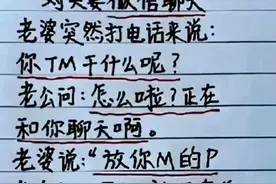 对夫妻微信聊天
老婆突然打电话来说:
你TM干什么呢?
老公问:怎么啦?正在
和你聊天啊。
老婆说:“放你M的P